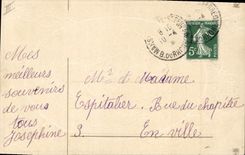 Mes
meilleurs
souvenirs
de vous
tous
Joséphine
Mr et Madame
Espitalier, Rue du chapitre
3.
En ville
5c